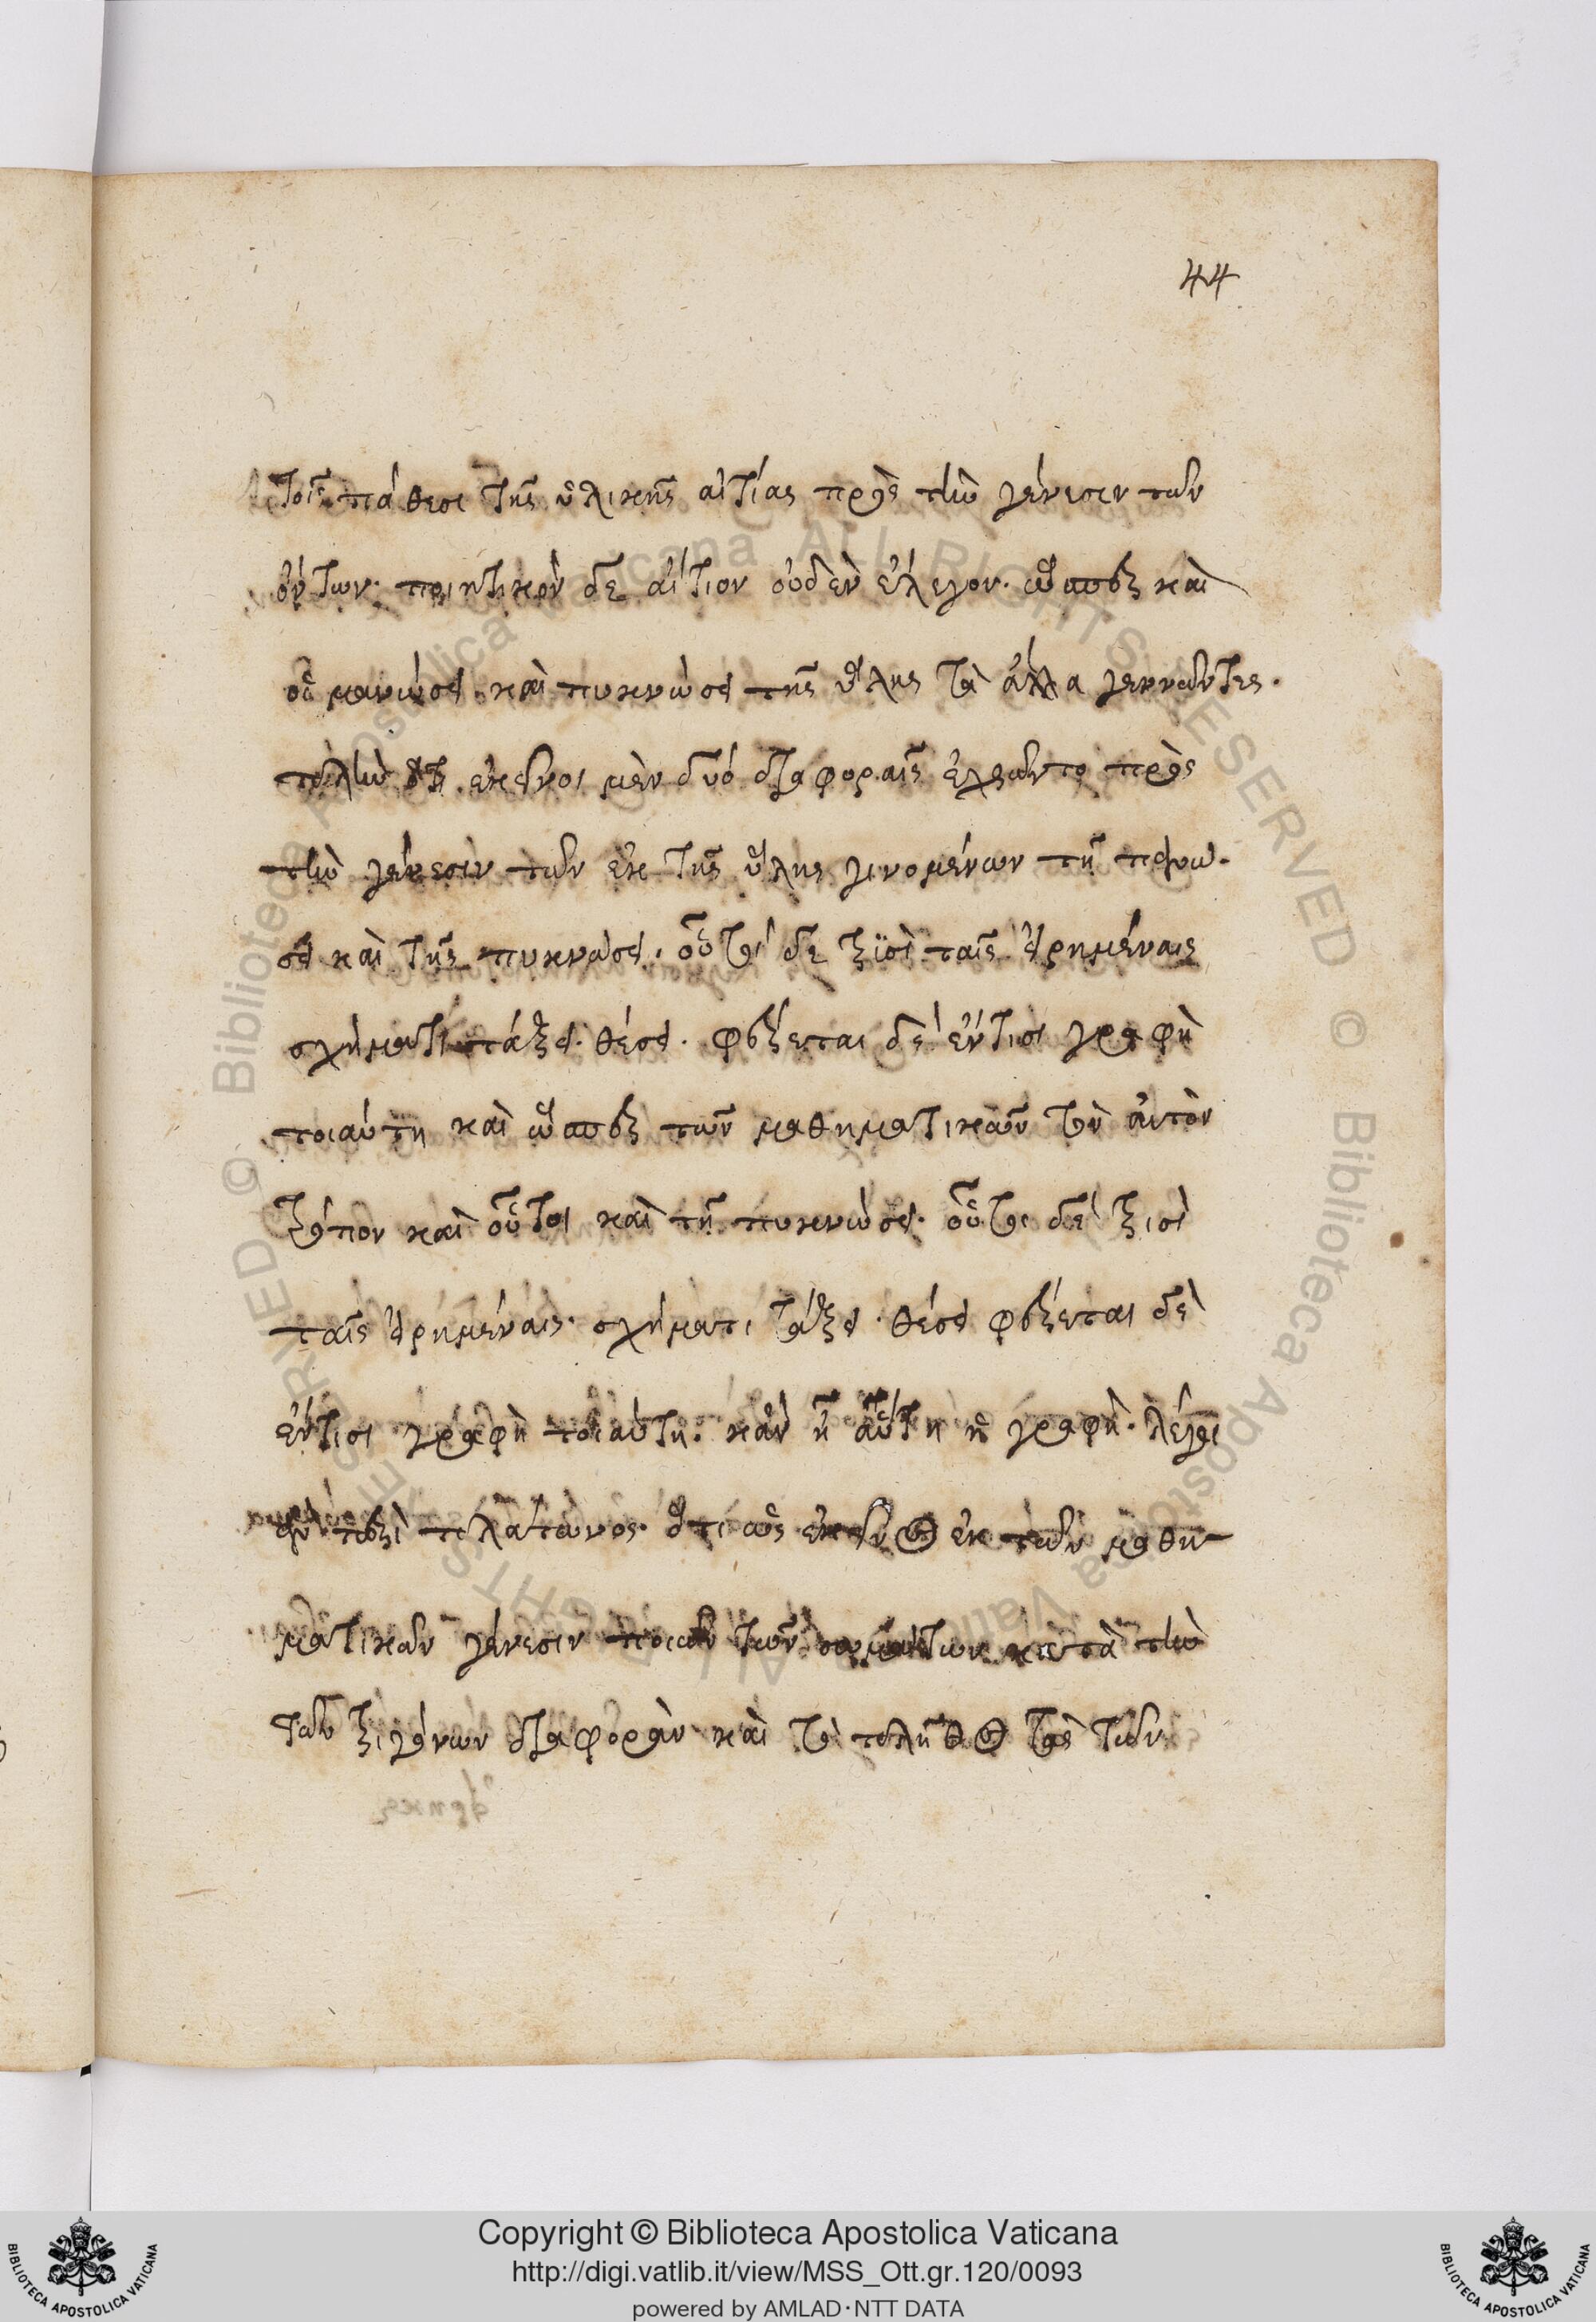 44
τοῖς πάθεσι τῆς ὑλικῆς αἰτίας πρὸς τὴν γένεσιν τῶν
ὄντων· ποιητικὸν δὲ αἴτιον οὐδὲν ἔλεγον. ὥσπερ καὶ
οἱ μανώσει καὶ πυκνώσει τῆς ὕλης τὰ ἄλλα γεννῶντες.
πλὴν ὅτι ἐκεῖνοι μὲν δυσὶ διαφοραῖς ἐχρῶντο πρὸς
τὴν γένεσιν τῶν ἐκ τῆς ὕλης γινομένων τῇ
σει καὶ τῆς πυκνώσει. οὗτοι δὲ τρισὶ ταῖς εἰρημέναις
σχήματι τάξει. θέσει. φέρεται δὲ ἔν τισι γραφὴ
τοιαύτη καὶ ὥσπερ τῶν μαθηματικῶν τὸν αὐτὸν
τρόπον καὶ οὗτοι καὶ τῇ πυκνώσει. οὗτοι δὲ τρισὶ
ταῖς εἰρημέναις. σχήματι τάξει. θέσει φέρεται δὲ
ἔν τισι γραφὴ τοιαύτη. κἂν ᾖ αὕτη ἡ γραφὴ. λέγοι
ἂν περὶ πλάτωνος. ὅτι ὡς ἐκεῖνος ἐκ τῶν μαθη-
ματικῶν γένεσιν ποιῶν τῶν σωμάτων κατὰ τὴν
τῶν τριγώνων διαφορὰν καὶ τὸ πλῆθος τὰς τῶν
Copyright © Biblioteca Apostolica Vaticana
http://digi.vatlib.it/view/MSS_Ott.gr.120/0093
powered by AMLAD·NTT DATA
BIBLIOTECA APOSTOLICA VATICANA
BIBLIOTECA APOSTOLICA VATICANA